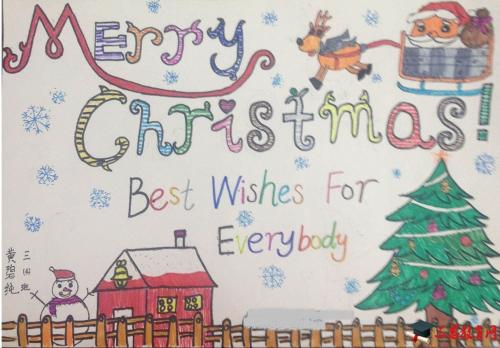 Merry
Christmas!
Best Wishes For
Everybody
三(4)班
黄碧纯